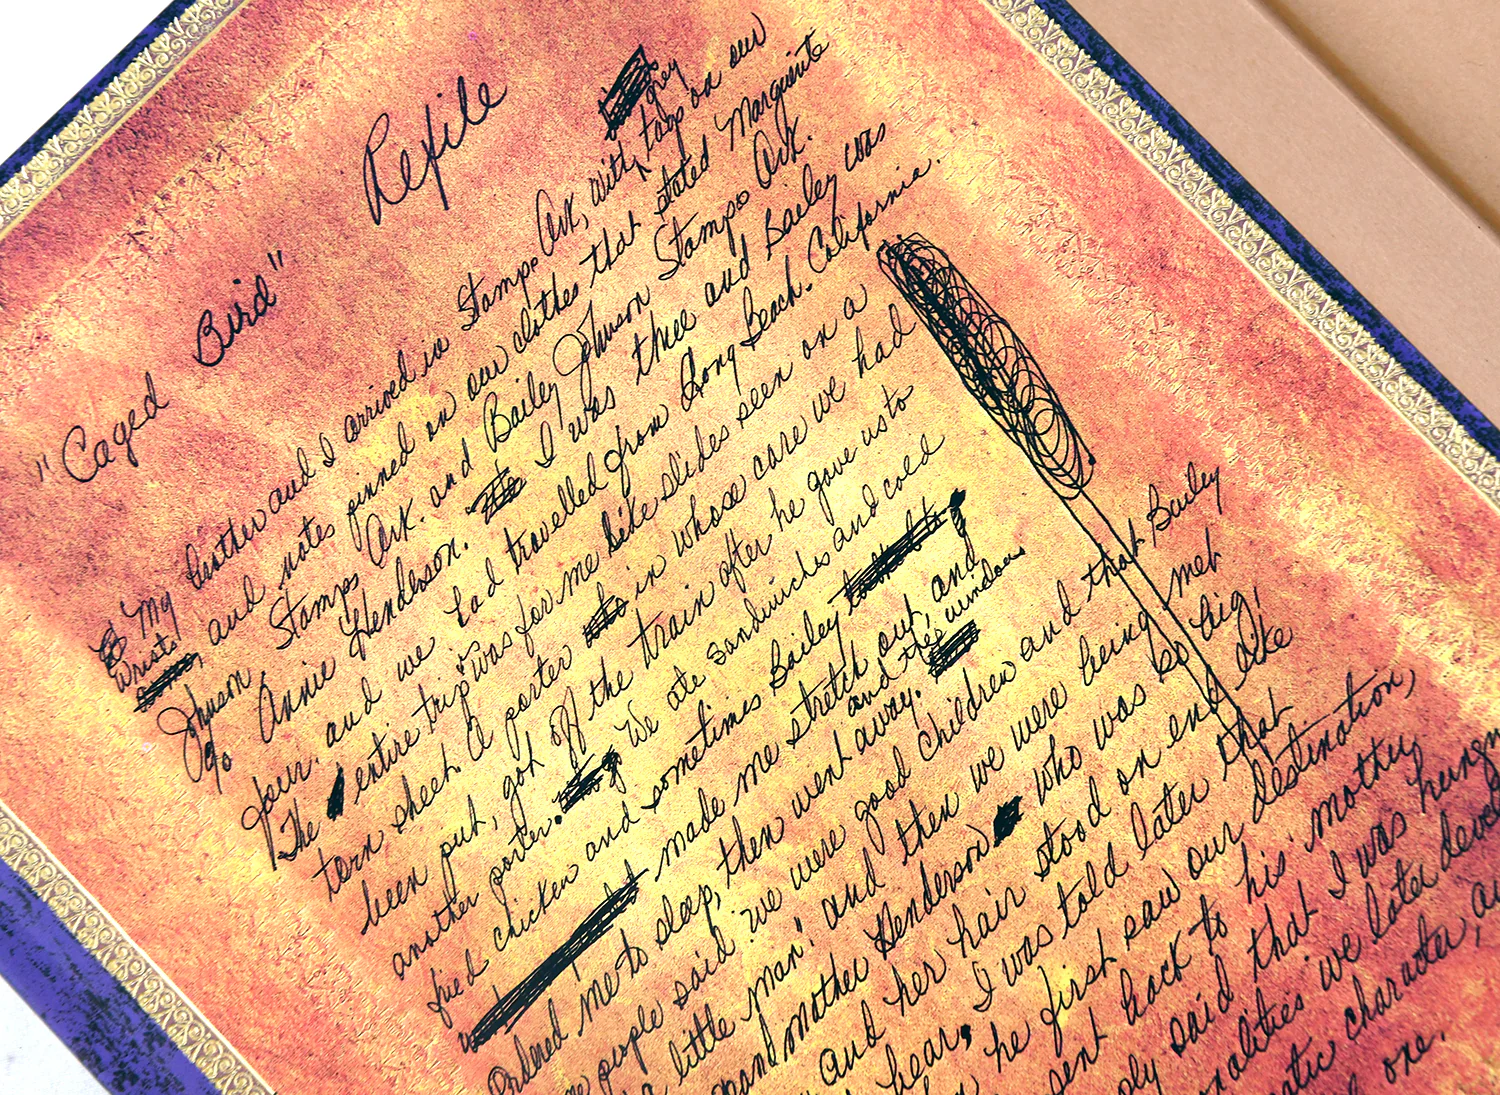 "Caged Bird" Refile
grey
My brother and I arrived in Stamps Ark, with tags on our
wrists, and notes pinned on our clothes that stated Marguerite
Johnson Stamps Ark. and Bailey Johnson Stamps Ark.
% Annie Henderson. I was three and Bailey was
four. and we had travelled from Long Beach. California.
The entire trip was for me like slides seen on a
torn sheet. A porter in whose care we had
been put, got off the train after he gave us to
another porter. We ate sandwiches and cold
fried chicken and sometimes Bailey
made me stretch out, and
Ordered me to sleep, then went away. and the window.
people said "we were good children and that Bailey
a little man" and then we were being met
grandmother Henderson who was so big!
and her hair stood on end like
bear, I was told later that
he first saw our destination,
sent back to his mother,
said that I was hungry
we later
character,
one.